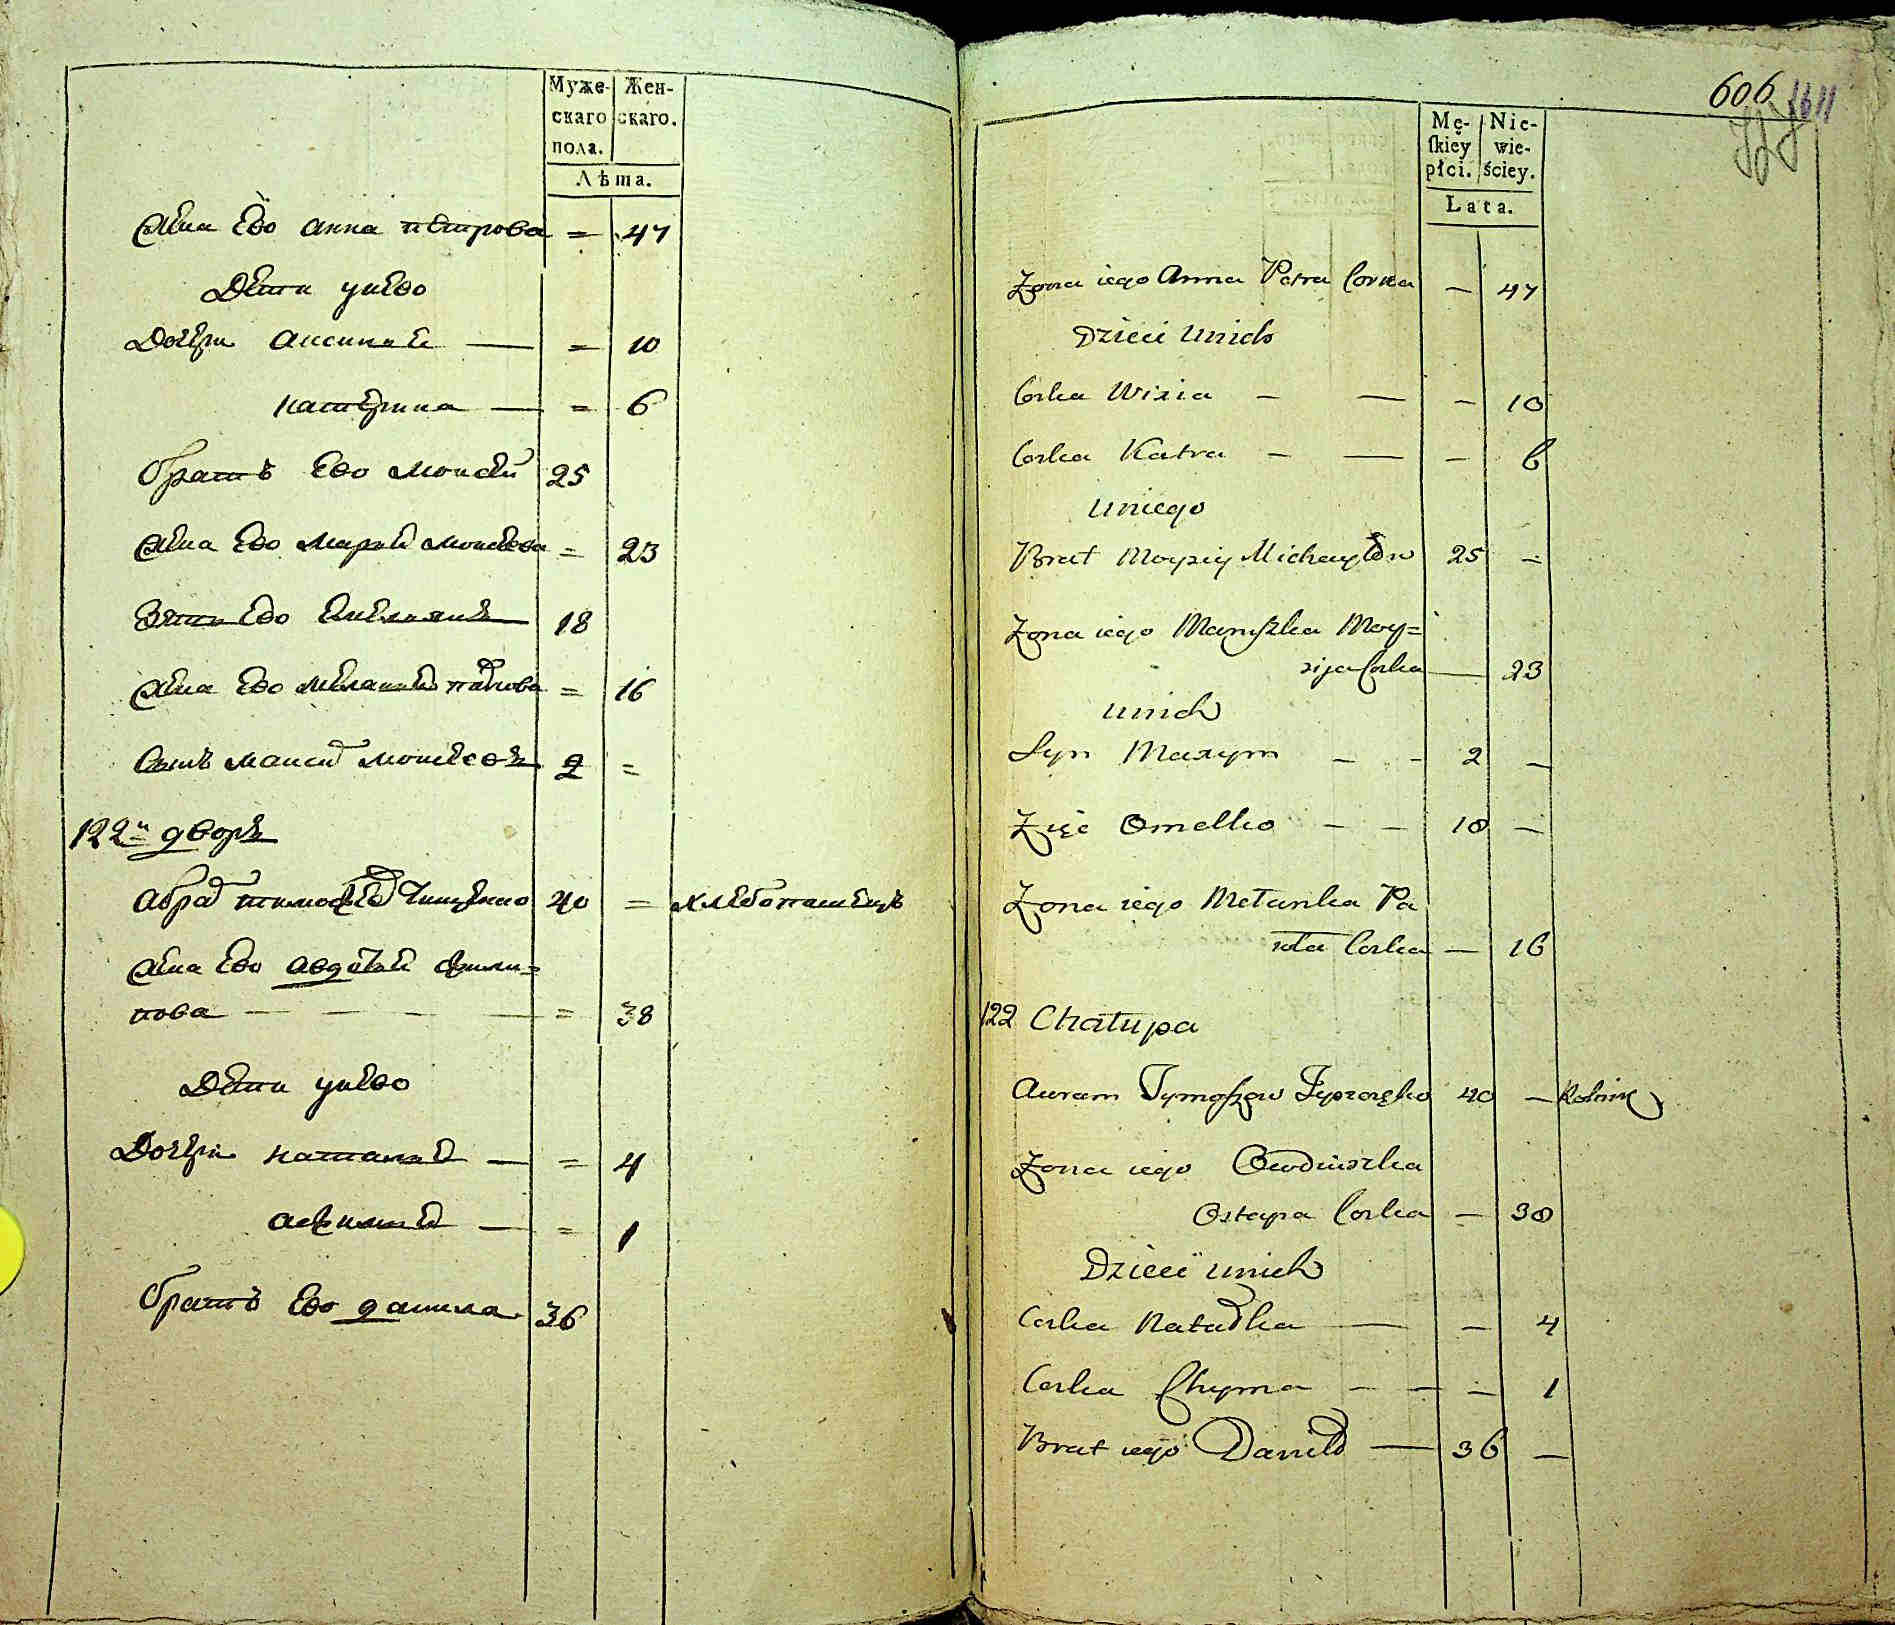 Муже-
скаго
пола.
Жен-
скаго.
Лѣта.
жена ево анна петрова = 47
Дети унево
Дочери аксиния — = 10
катерина — = 6
братъ ево моисей 25
жена ево мария моисеева = 23
Зять ево емельянъ 18
жена ево мелания павлова = 16
Сынъ максим моисеевъ 2 =
122й дворъ
аврам тимофеев 40 = хлебопашецъ
жена ево авдотья фили=
пова — — — — = 38
Дети унево
Дочери наталия — = 4
афимия — = 1
братъ ево данила 36
606
1611
Mę-
ſkiey
płci.
Nie-
wie-
ściey.
Lata.
Żona iego Anna Petra Corka — 47
Dzieci unich
Corka Wixia — — — 10
Corka Katra — — — 6
uniego
Brat Moysiy Michayłow 25 —
Żona iego Maruszka Moy=
sija Corka — 23
unich
Syn Maxym — - 2 —
Zięć Omelko — — 18 —
Żona iego Mełanka Pa
wła Corka — 16
122 Chałupa
Awram Tymoszow 40 — Rolnik
Żona iego Owdiuszka
Ostapa Corka — 38
Dzieci unich
Corka Natałka — — 4
Corka Chyma — — — 1
Brat iego Daniło — 36 —